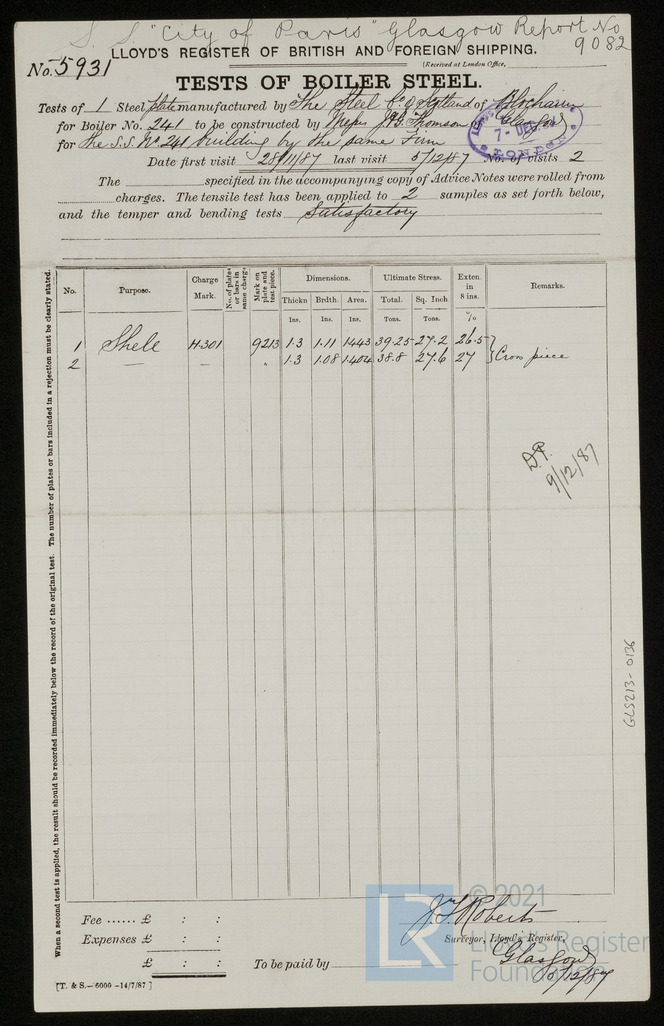 S. S. "City of Paris" Glasgow Report No
9082
LLOYD'S REGISTER OF BRITISH AND FOREIGN SHIPPING.
No. 5931
(Received at London Office,
TESTS OF BOILER STEEL.
Tests of 1 Steel plate manufactured by The Steel Co. of Scotland of Blochairn
for Boiler No. 241 to be constructed by Messrs J & G Thomson of Glasgow
7- DEC
LONDON
for the S.S. No 241 building by the same Firm
Date first visit 28/11/87 last visit 5/12/87 No. of visits 2
The specified in the accompanying copy of Advice Notes were rolled from
charges. The tensile test has been applied to 2 samples as set forth below,
and the temper and bending tests Satisfactory
No. Purpose. Charge Mark. No. of plates or bars in same charge Mark on plate and test piece. Dimensions. Ultimate Stress. Exten. in 8 ins. Remarks.
Thickn Brdth. Area. Total. Sq. Inch
Ins. Ins. Ins. Tons. Tons. %
1 Shell H301 9213 1.3 1.11 1.443 39.25 27.2 26.5
2 — — " 1.3 1.08 1.404 38.8 27.6 27 } Cross piece
D.P.
9/12/87
When a second test is applied, the result should be recorded immediately below the record of the original test. The number of plates or bars included in a rejection must be clearly stated.
GLS213-0136
Fee ...... £ : :
Expenses £ : :
£ : :
To be paid by
J. Roberts
Surveyor, Lloyd's Register,
Glasgow
5/12/87
[T. & S.—6000 —14/7/87]
LR
© 2021
Lloyd's Register
Foundation